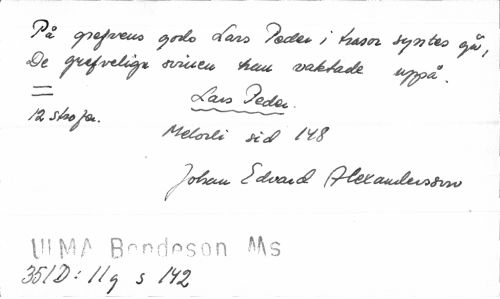 På grefvens gods Lars Peder i trasor syntes gå,
De grefveliga svinen han vaktade uppå.
=
12 strofer.
Lars Peder.
Melodi sid 148
Johan Edvard Alexandersson
ULMA Bondeson Ms
351D: 11q s 142